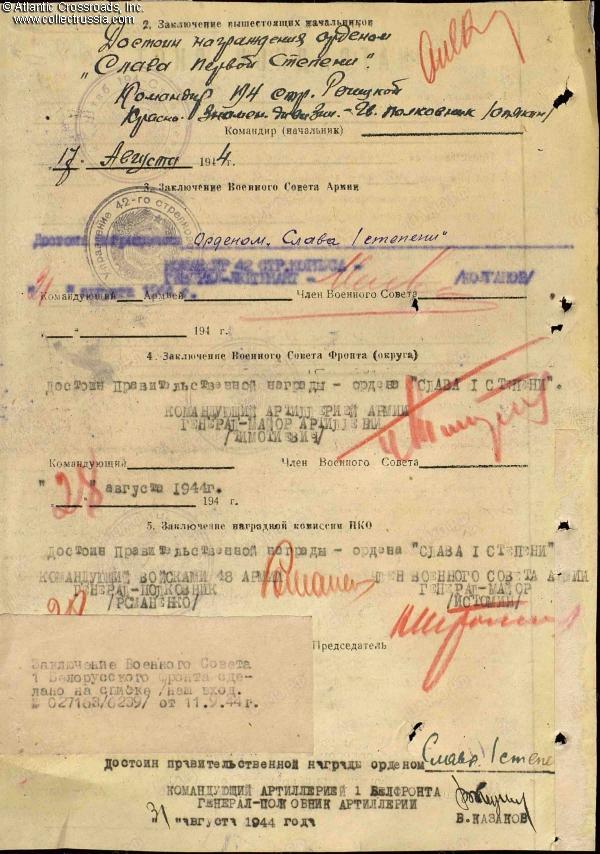 © Atlantic Crossroads, Inc.
www.collectrussia.com
2. Заключение вышестоящих начальников
Достоин награждения орденом
"Слава первой степени".
Командир 194 стр. Речицкой
Красно. Знамен. дивизии - Гв. полковник /опякин/
Командир (начальник)
17. Августа 1944г.
3. Заключение Военного Совета Армии
Управление 42-го стрелко
Достоин награждения Орденом "Слава I степени"
КОМАНДИР 42 СТР. КОРПУСА -
ЛЕЙТЕНАНТ - /КОЛГАНОВ/
" " августа 194
Командующий Армией Член Военного Совета
" " 194 г.
4. Заключение Военного Совета Фронта (округа)
Достоин Правительственной награды - ордена "СЛАВА I СТЕПЕНИ".
КОМАНДУЮЩИЙ АРТИЛЛЕРИЕЙ АРМИИ
ГЕНЕРАЛ-МАЙОР АРТИЛЛЕРИИ
/ТИМОТИЕВИЧ/
Командующий Член Военного Совета
"28" августа 1944г.
194 г.
5. Заключение наградной комиссии НКО
Достоин Правительственной награды - ордена "СЛАВА I СТЕПЕНИ"
КОМАНДУЮЩИЙ ВОЙСКАМИ 48 АРМИИ ЧЛЕН ВОЕННОГО СОВЕТА АРМИИ
ГЕНЕРАЛ-ПОЛКОВНИК ГЕНЕРАЛ-МАЙОР
/РОМАНЕНКО/ /ИСТОМИН/
Председатель
Заключение Военного Совета
1 Белорусского фронта сде-
лано на списке /наш вход.
№ 027163/6239/ от 11.9.44г.
Достоин правительственной награды орденом Слава I степе
КОМАНДУЮЩИЙ АРТИЛЛЕРИЕЙ 1 БЕЛФРОНТА
ГЕНЕРАЛ-ПОЛКОВНИК АРТИЛЛЕРИИ
В.КАЗАКОВ
31 "августа 1944 года